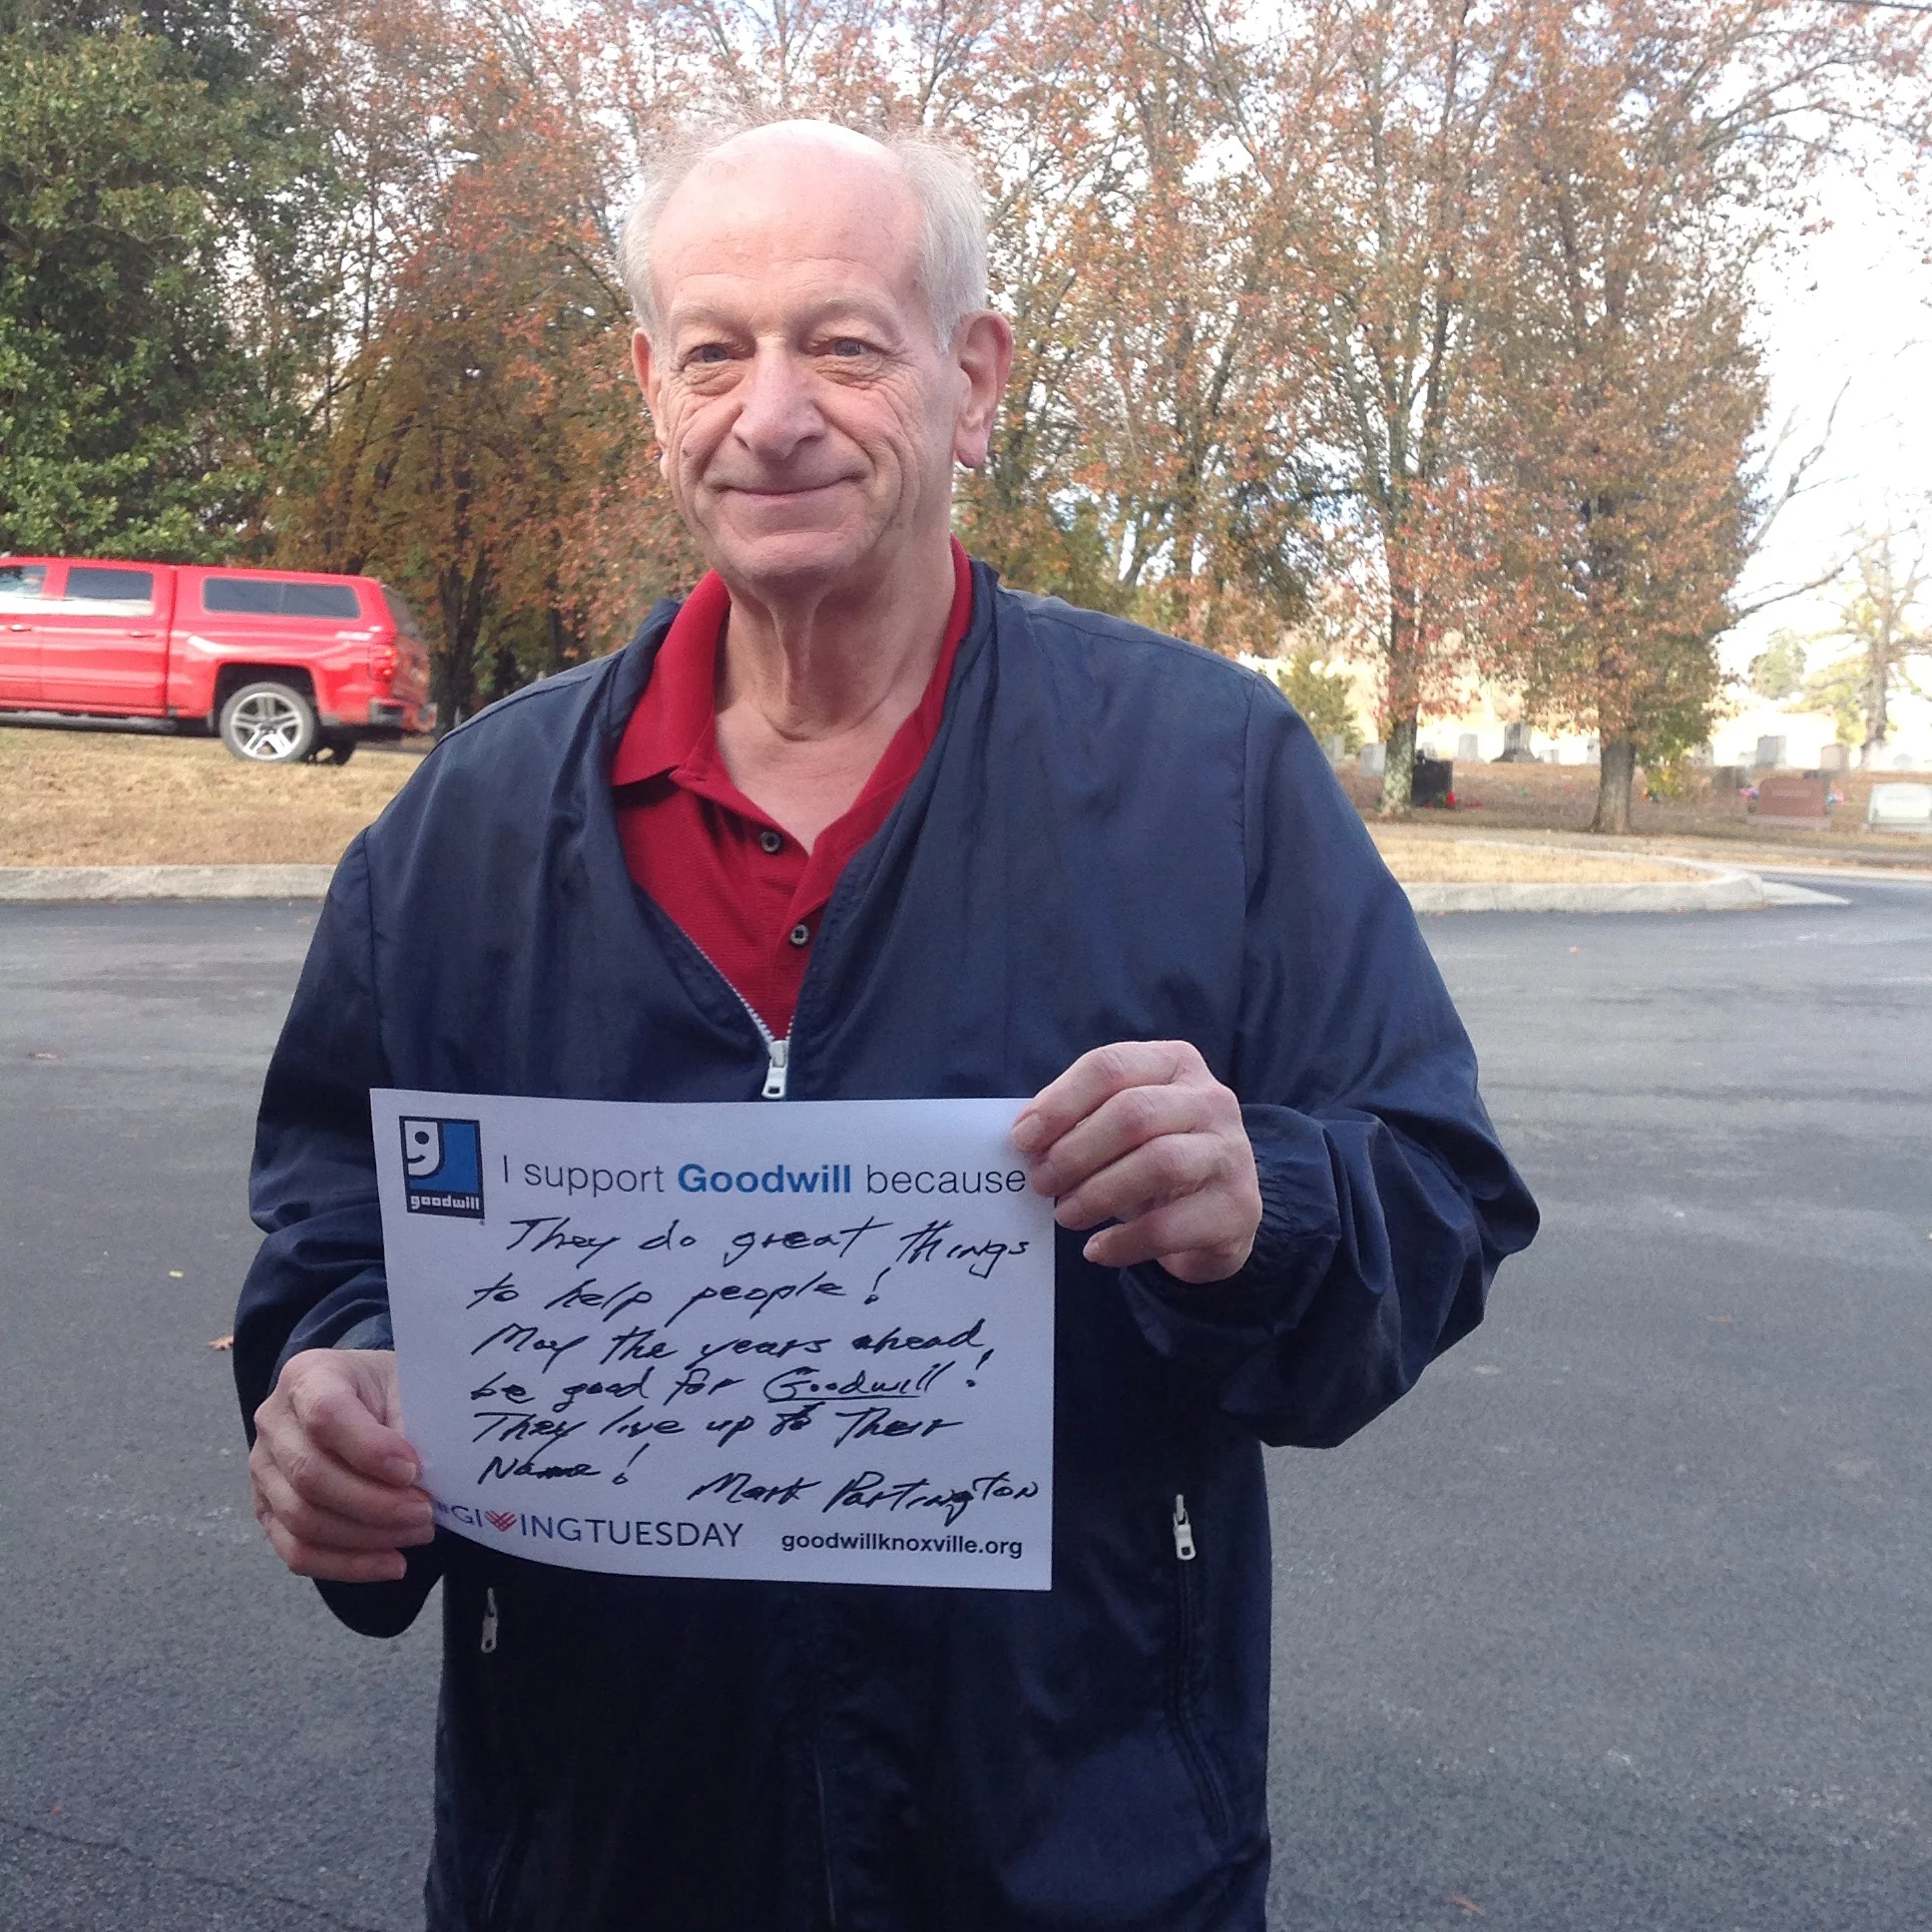 goodwill
I support Goodwill because
They do great things
to help people!
May the years ahead,
be good for Goodwill!
They live up to Their
Name! Mark Partington
#GIVINGTUESDAY goodwillknoxville.org